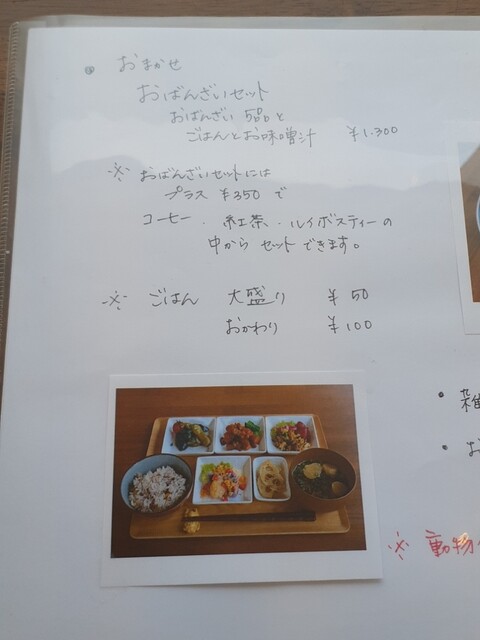 ● おまかせ
おばんざいセット
おばんざい 5品と
ごはんとお味噌汁 ¥1.300
※ おばんざいセットには
プラス ¥350 で
コーヒー ・ 紅茶 ・ ルイボスティーの
中から セット できます。
※ ごはん 大盛り ¥ 50
おかわり ¥ 100
・ 雑
・ お
※ 動物